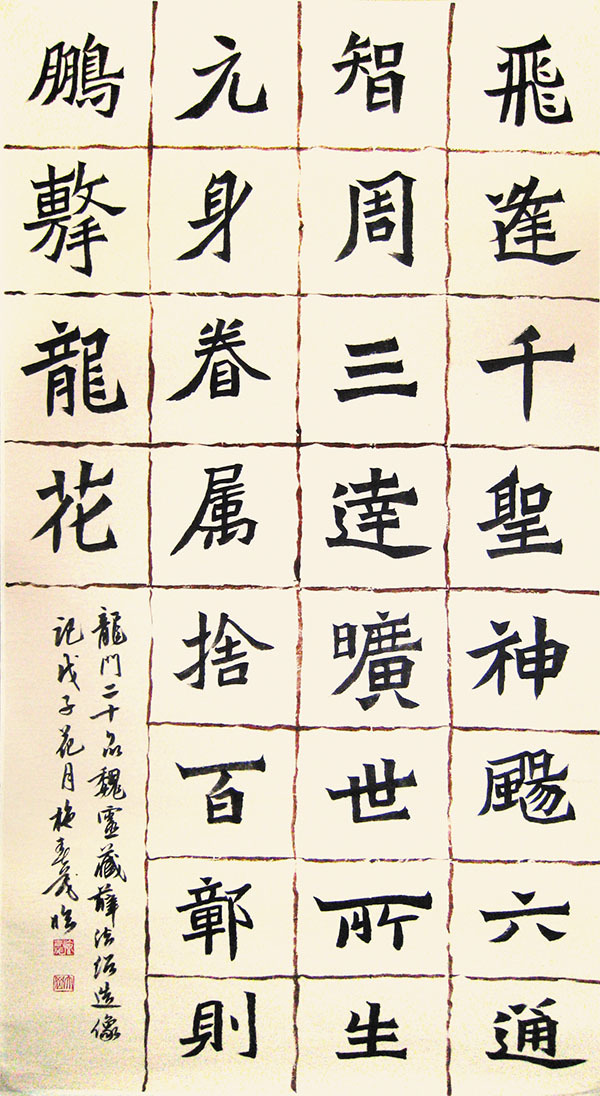 飛逢千聖神颺六通
智周三達曠世所生
元身眷属捨百鄣則
鵬擊龍花
龍門二十品魏靈藏薛法紹造像
記戊子花月施春臨